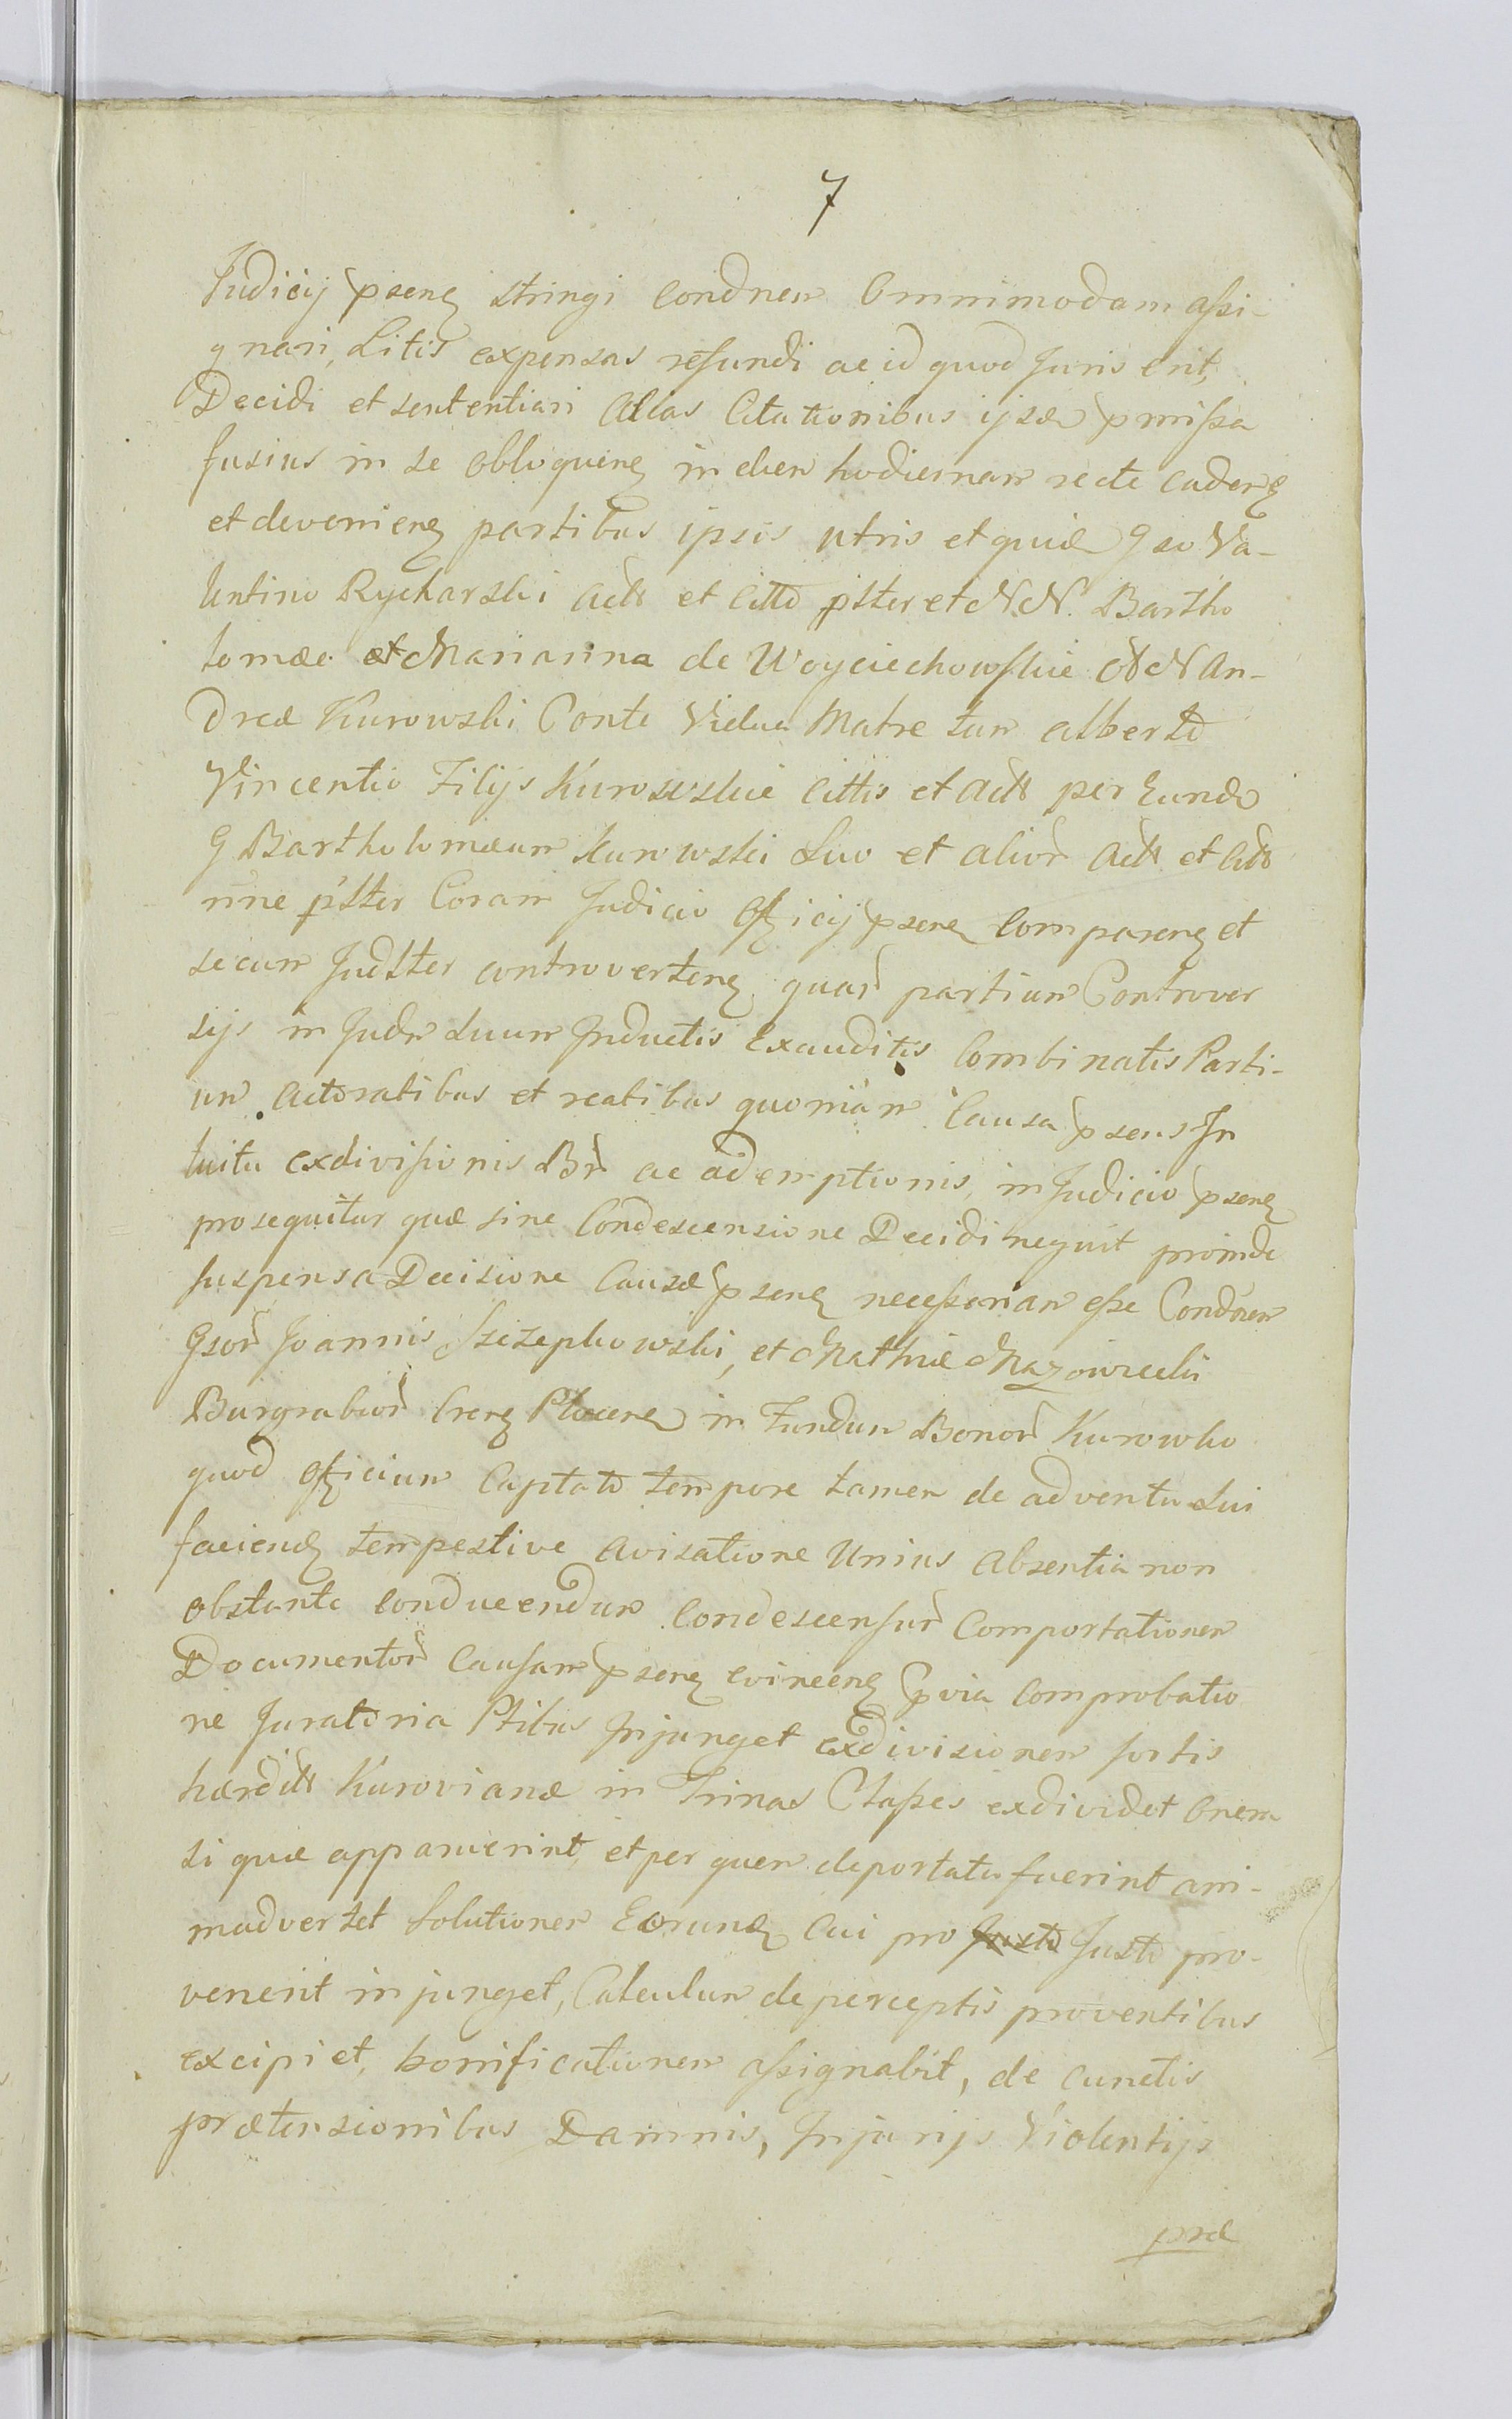 7
Judicij psens stringi condnem Omnimodam assi-
gnari, Litis expensas refundi ac id quod Juris erit,
Decidi et sententiari Alias Citationibus ijsdem pmissa
fusius in se obloquens in diem hodiernam recte caden
et devenien partibus ipsis utris et quidem Gso Va-
lentino Rycharski Act et citto pstter et NN. Bartho
lomæo et Marianna de Woyciechowskie NN An-
dreæ Kurowski Conte Vidua Matre tum Alberto
Vincentio Filijs Kurowskie cittis et Act per Eundem
G Bartholomæum Kurowski Suo et alior Act et Citt
nne pstter Coram Judicio Officij psen Comparen et
secum Judltter controverten quar partium Controver
sijs in Judm Suum Inductis Exauditis Combinatis Parti-
um Actoratibus et reatibus quoniam Causa psens In
tuitu exdivisionis Br ac ademptionis, in Judicio psen
prosequitur quæ sine Condescensione Decidi nequit proinde
suspensa Decisione Causæ psen necessariam esse Condnem
Gsor Joannis Szczepkowski, et Mathiæ Mazowiecki
Burgrabior Cren Plocen in Fundum Bonor Kurowko
quod Officium Captato tempore tamen de adventu Sui
faciend tempestive avisatione Unius absentia non
obstante conducendum Condescensur Comportationem
Documentor Causam psen evincen pvia comprobatio
ne Juratoria Ptibus Injunget exdivisionem sortis
hærditt Kurovianæ in Trinas Classes exdividet Onera
si quæ apparuerint, et per quem deportata fuerint ani-
madvertet Solutionem Eorund cui pro Justo Justo pro-
venerit injunget, Calculum de perceptis proventibus
excipiet, bonificationem assignabit, de cunctis
prætensionibus Damnis, Injurijs Violentijs
præ